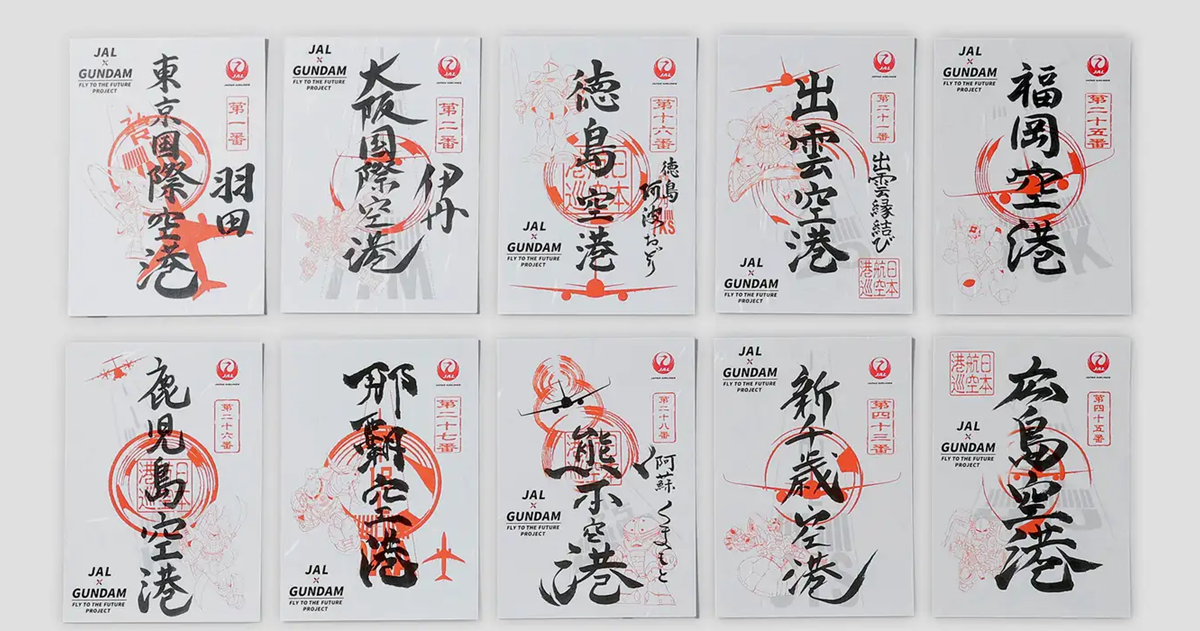 JAL
×
GUNDAM
FLY TO THE FUTURE
PROJECT
東京国際空港
羽田
第一番
JAL
JAPAN AIRLINES
JAL
×
GUNDAM
FLY TO THE FUTURE
PROJECT
大阪国際空港
伊丹
第二番
JAL
JAPAN AIRLINES
徳島空港
徳島
阿波おどり
第十六番
JAL
JAPAN AIRLINES
日本
航空
港巡
JAL
×
GUNDAM
FLY TO THE FUTURE
PROJECT
出雲空港
出雲縁結び
第二十一番
JAL
JAPAN AIRLINES
日本
航空
港巡
JAL
×
GUNDAM
FLY TO THE FUTURE
PROJECT
JAL
×
GUNDAM
FLY TO THE FUTURE
PROJECT
福岡空港
第二十五番
JAL
JAPAN AIRLINES
鹿児島空港
第二十六番
JAL
JAPAN AIRLINES
日本
航空
港巡
JAL
×
GUNDAM
FLY TO THE FUTURE
PROJECT
那覇空港
第二十七番
JAL
JAPAN AIRLINES
JAL
×
GUNDAM
FLY TO THE FUTURE
PROJECT
熊本空港
阿蘇
くまもと
第二十八番
JAL
JAPAN AIRLINES
JAL
×
GUNDAM
FLY TO THE FUTURE
PROJECT
JAL
×
GUNDAM
FLY TO THE FUTURE
PROJECT
新千歳空港
第四十三番
JAL
JAPAN AIRLINES
日本
航空
港巡
広島空港
第四十五番
JAL
JAPAN AIRLINES
JAL
×
GUNDAM
FLY TO THE FUTURE
PROJECT